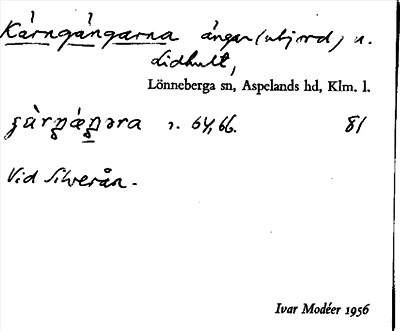 Kärngängarna ängar (utjord) u.
Lidhult,
Lönneberga sn, Aspelands hd, Klm. l.
s. 64, 66. 81
Vid Silverån.
Ivar Modéer 1956